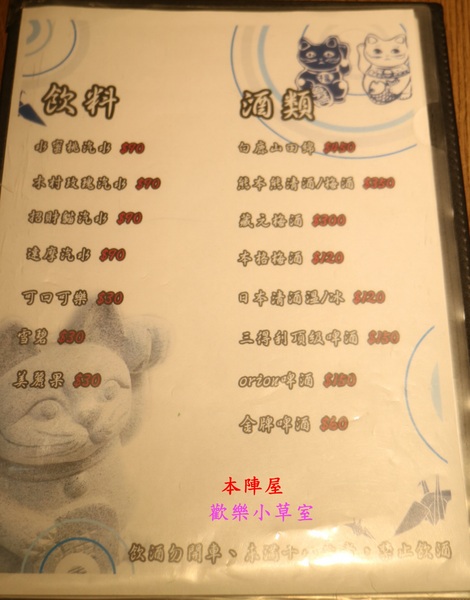 飲料
水蜜桃汽水 $70
木村玫瑰汽水 $70
招財貓汽水 $70
達摩汽水 $70
可口可樂 $30
雪碧 $30
美麗果 $30
酒類
白鹿山田錦
熊本熊清酒/梅酒 $350
藏元梅酒 $300
本格梅酒 $120
日本清酒溫/冰 $120
三得利頂級啤酒 $150
orion啤酒 $150
金牌啤酒 $60
本陣屋
歡樂小草室
飲酒勿開車、未滿十八歲者，禁止飲酒